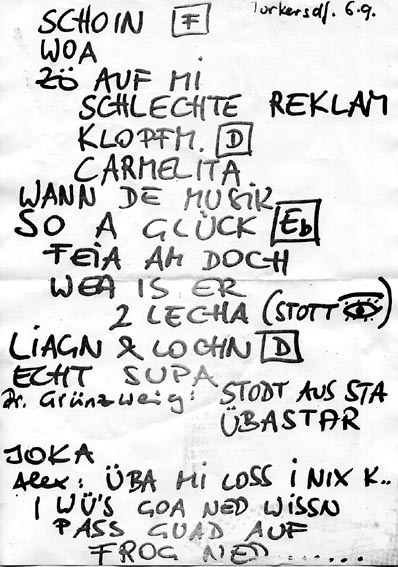 Purkersdf. 6.9.
SCHOIN F
WOA
ZÖ AUF MI
SCHLECHTE REKLAM
KLOPFM. D
CARMELITA
WANN DE MUSIK
SO A GLÜCK Eb
FEIA AM DOCH
WEA IS ER
2 LECHA (STOTT )
LIAGN & LOCHN D
ECHT SUPA
Dr. Grünzweig: STODT AUS STA
ÜBASTAR
JOKA
Alex: ÜBA MI LOSS I NIX K..
I WÜ'S GOA NED WISSN
PASS GUAD AUF
FROG NED ......